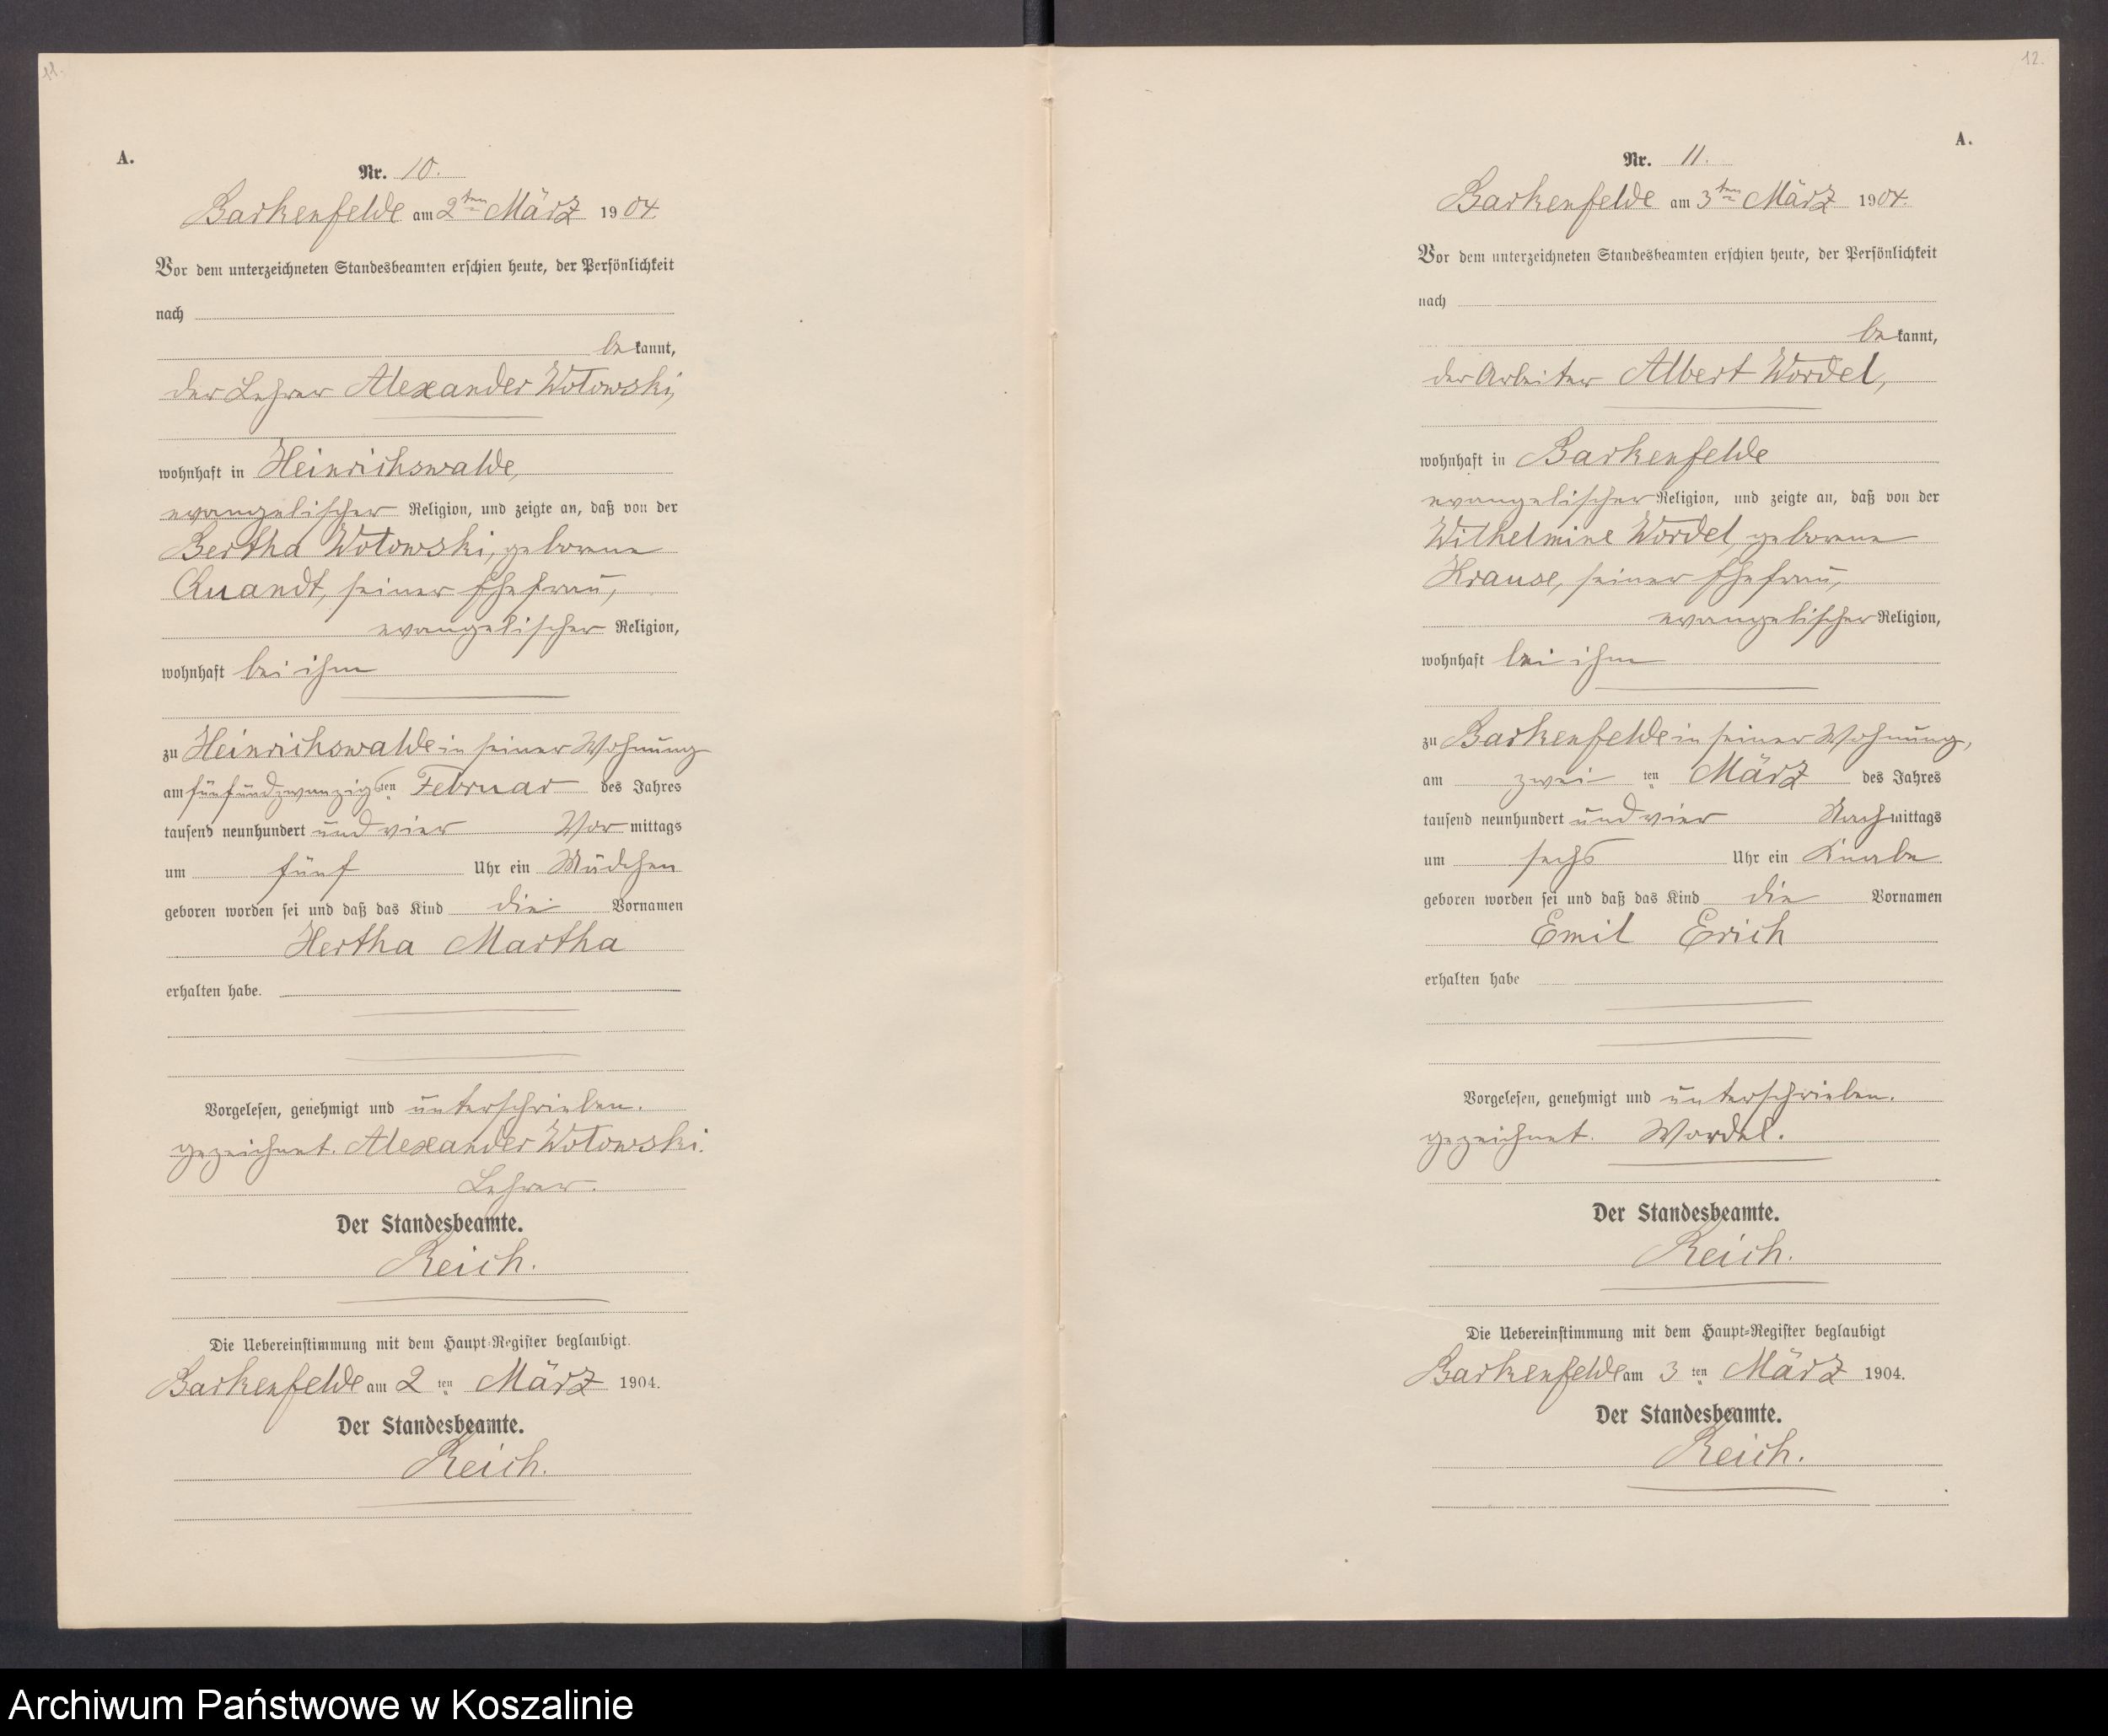 11.
A.
Nr. 10.
Barkenfelde am 2ten März 1904.
Vor dem unterzeichneten Standesbeamten erschien heute, der Persönlichkeit
nach
bekannt,
der Lehrer Alexander Wotowski,
wohnhaft in Heinrichswalde,
evangelischer Religion, und zeigte an, daß von der
Bertha Wotowski, geborene
Quandt, seiner Ehefrau,
evangelischer Religion,
wohnhaft bei ihm
zu Heinrichswalde in seiner Wohnung
am fünfundzwanzigsten Februar des Jahres
tausend neunhundert und vier Vormittags
um fünf Uhr ein Mädchen
geboren worden sei und daß das Kind die Vornamen
Hertha Martha
erhalten habe.
Vorgelesen, genehmigt und unterschrieben.
gezeichnet. Alexander Wotowski.
Lehrer.
Der Standesbeamte.
Reich.
Die Uebereinstimmung mit dem Haupt-Register beglaubigt.
Barkenfelde am 2 ten März 1904.
Der Standesbeamte.
Reich.
12.
A.
Nr. 11.
Barkenfelde am 3ten März 1904.
Vor dem unterzeichneten Standesbeamten erschien heute, der Persönlichkeit
nach
bekannt,
der Arbeiter Albert Wordel,
wohnhaft in Barkenfelde
evangelischer Religion, und zeigte an, daß von der
Wilhelmine Wordel, geborene
Krause, seiner Ehefrau,
evangelischer Religion,
wohnhaft bei ihm
zu Barkenfelde in seiner Wohnung,
am zwei ten März des Jahres
tausend neunhundert und vier Nachmittags
um sechs Uhr ein Knabe
geboren worden sei und daß das Kind die Vornamen
Emil Erich
erhalten habe
Vorgelesen, genehmigt und unterschrieben.
gezeichnet. Wordel.
Der Standesbeamte.
Reich.
Die Uebereinstimmung mit dem Haupt-Register beglaubigt
Barkenfelde am 3 ten März 1904.
Der Standesbeamte.
Reich.
Archiwum Państwowe w Koszalinie